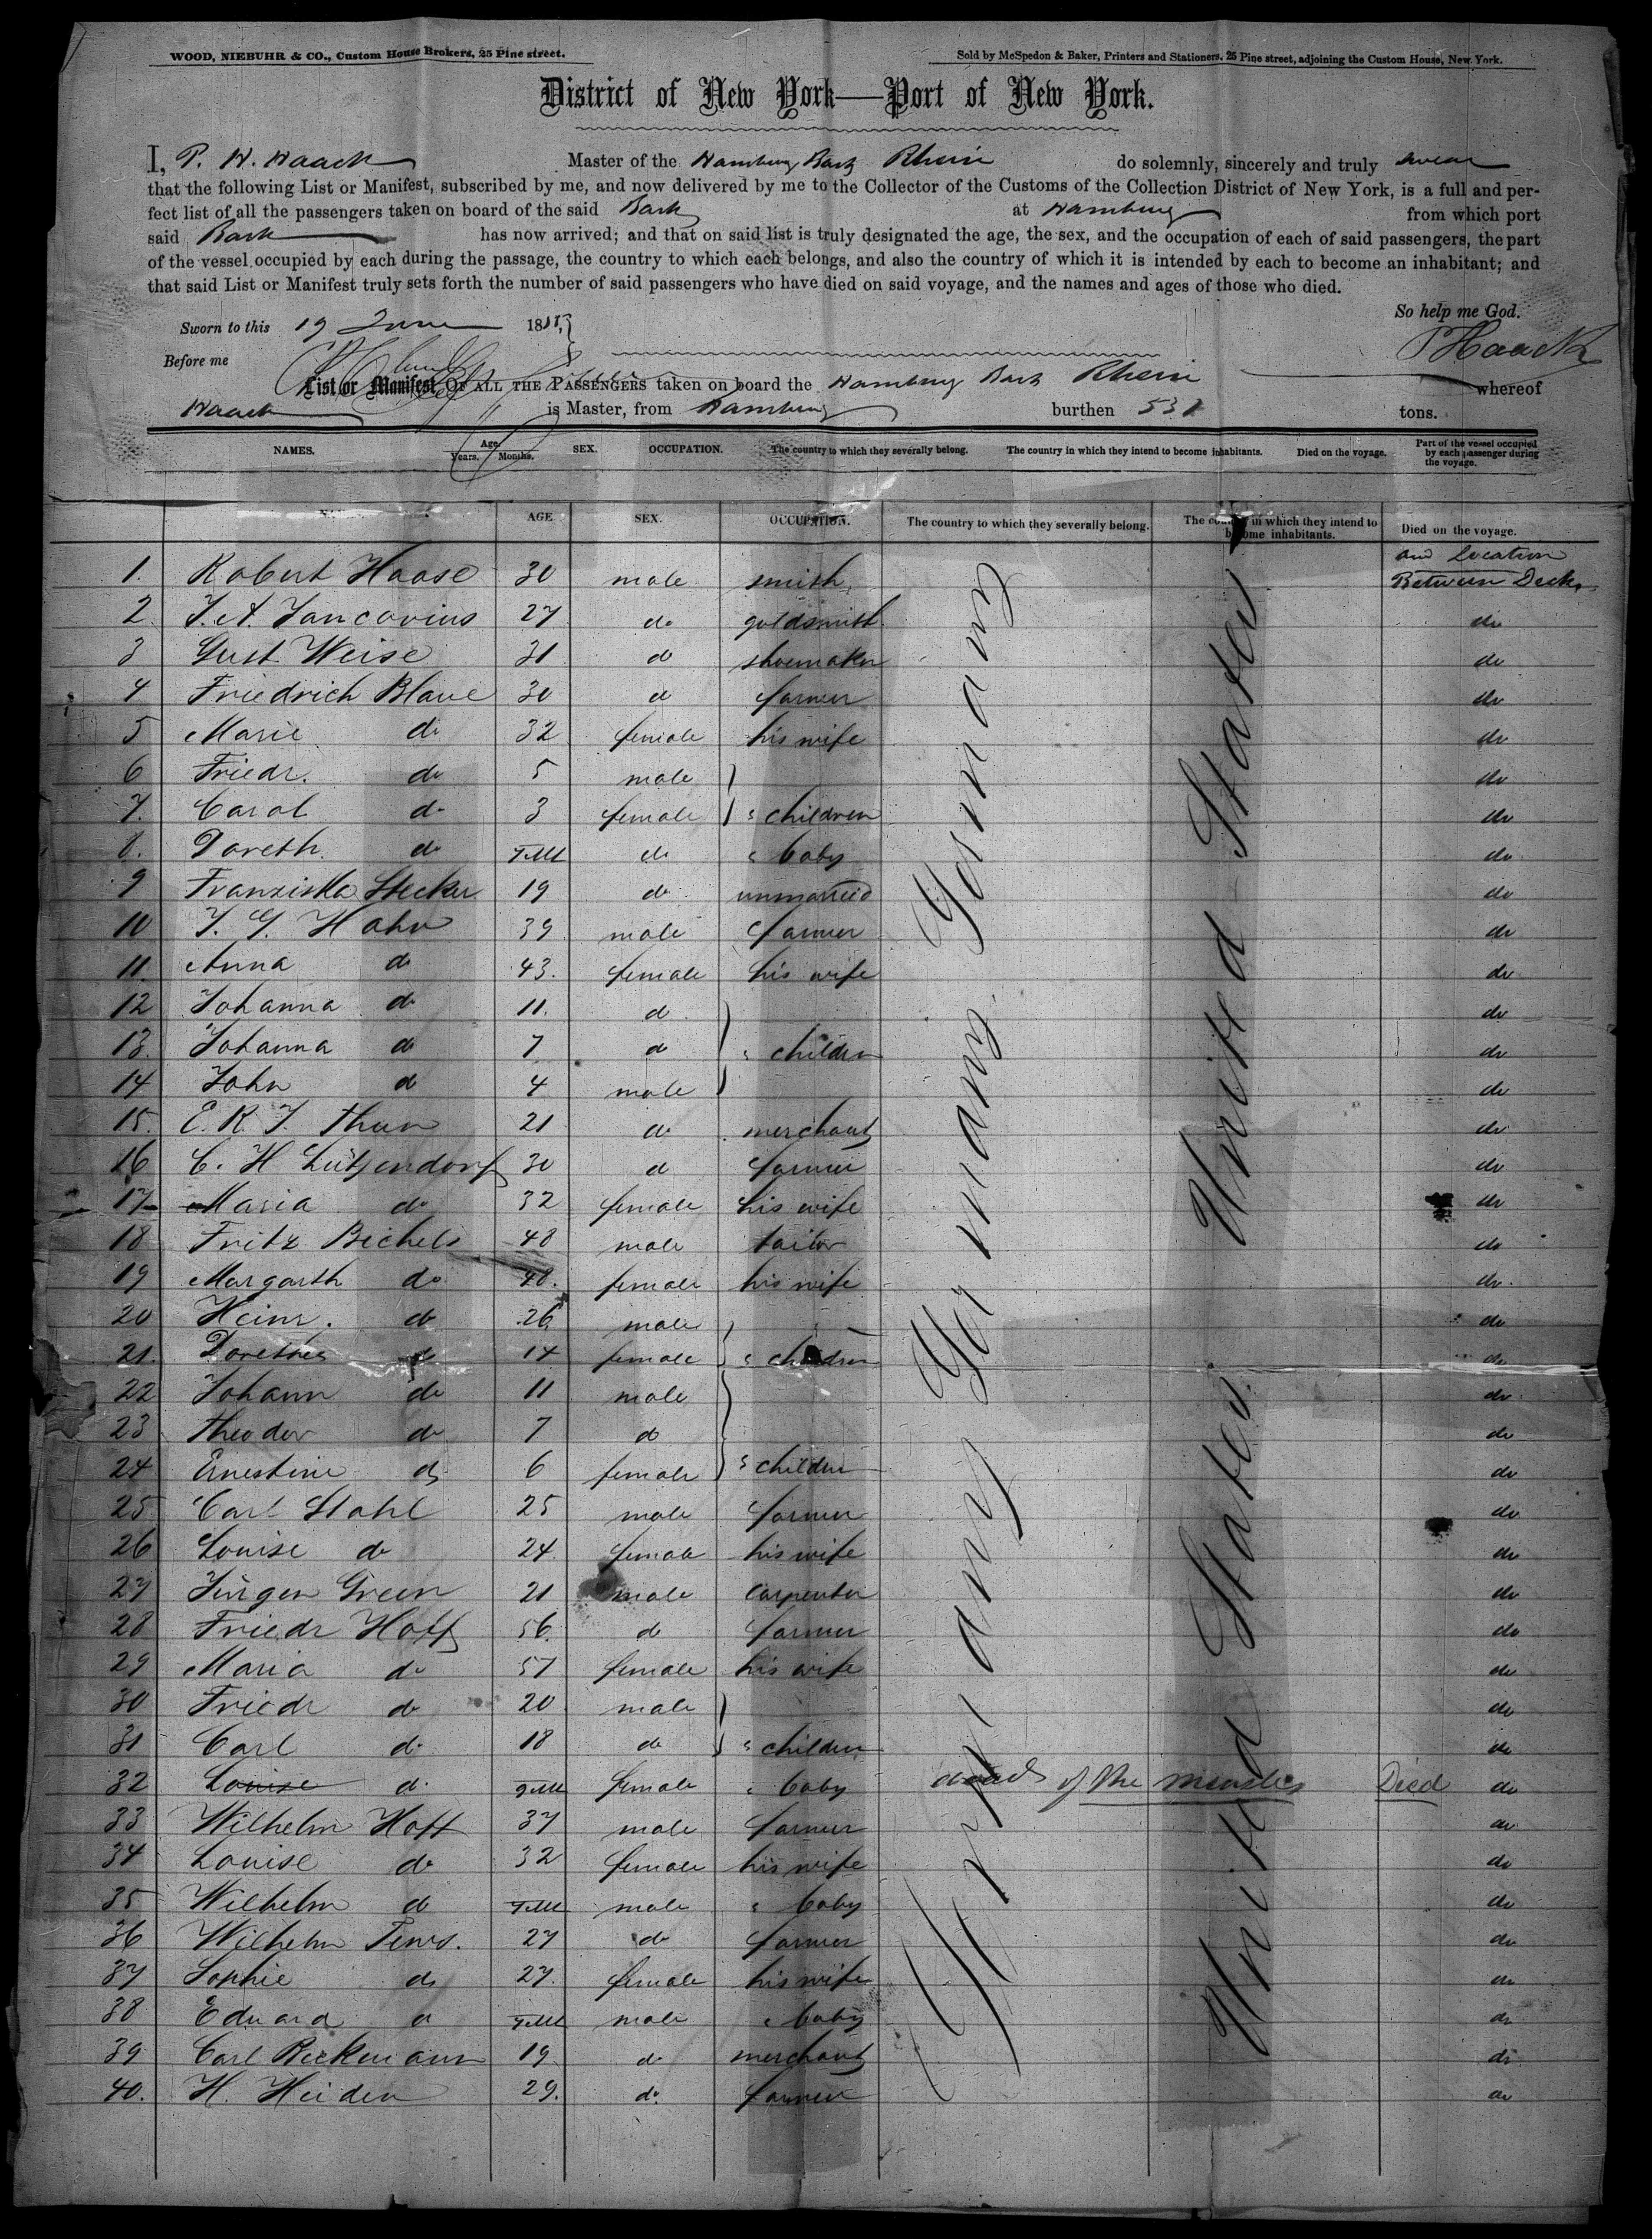 WOOD, NIEBUHR & CO., Custom House Brokers, 25 Pine street.
Sold by McSpedon & Baker, Printers and Stationers, 25 Pine street, adjoining the Custom House, New York.
District of New York—Port of New York.
I, P. H. Haack Master of the Hamburg Bark Rhein do solemnly, sincerely and truly swear
that the following List or Manifest, subscribed by me, and now delivered by me to the Collector of the Customs of the Collection District of New York, is a full and per-
fect list of all the passengers taken on board of the said Bark at Hamburg from which port
said Bark has now arrived; and that on said list is truly designated the age, the sex, and the occupation of each of said passengers, the part
of the vessel occupied by each during the passage, the country to which each belongs, and also the country of which it is intended by each to become an inhabitant; and
that said List or Manifest truly sets forth the number of said passengers who have died on said voyage, and the names and ages of those who died.
So help me God.
Sworn to this 19 June 18
Before me
P Haack
List or Manifest OF ALL THE PASSENGERS taken on board the Hamburg Bark Rhein whereof
Haack is Master, from Hamburg burthen 531 tons.
NAMES. Age. Years. Months. SEX. OCCUPATION. The country to which they severally belong. The country in which they intend to become inhabitants. Died on the voyage. Part of the vessel occupied by each passenger during the voyage.
AGE SEX. OCCUPATION. The country to which they severally belong. The country in which they intend to become inhabitants. Died on the voyage.
and Location
1. Robert Haase 30 male smith Between Deck
2. J. A. Jancovius 27 do goldsmith do
3 Gust. Weise 31 do shoemaker do
4 Friedrich Blaue 30 do farmer do
5 Marie do 32 female his wife do
6 Friedr. do 5 male do
7. Carol do 3 female " children do
8. Doreth. do do " baby do
9 Franziska Stecker 19 do unmarried do
10 J. G. Hahn 39 male farmer do
11. Anna do 43. female his wife do
12 Johanna do 11. do do
13. Johanna do 7 do " children do
14 John do 4 male do
15. E. R. J. Thun 21 do merchant do
16 C. H Lützendorf 30 do farmer do
17 Maria do 32 female his wife do
18 Fritz Bichels 48 male tailor do
19 Margarth do 48. female his wife do
20 Heinr. do 26 male do
21. Dorethea do 14 female " children do
22 Johann do 11 male do
23 Theodor do 7 do do
24 Ernestine do 6 female " children do
25 Carl Stahl 25 male farmer do
26 Louise do 24 female his wife do
27 Jürgen Green 21 male carpenter do
28 Friedr Hoff 56 do farmer do
29 Maria do 57 female his wife do
30 Friedr do 20 male do
31 Carl do 18 do " children do
32 Louise do female " baby of the measles Died do
33 Wilhelm Hoff 37 male farmer do
34 Louise do 32 female his wife do
35 Wilhelm do male " baby do
36 Wilhelm Tews. 27 do farmer do
37 Sophie do 27. female his wife do
38 Eduard do male " baby do
39 Carl Beckmann 19 do merchant do
40. H. Heiden 29. do farmer do
Germany Germany Germany
United States United States